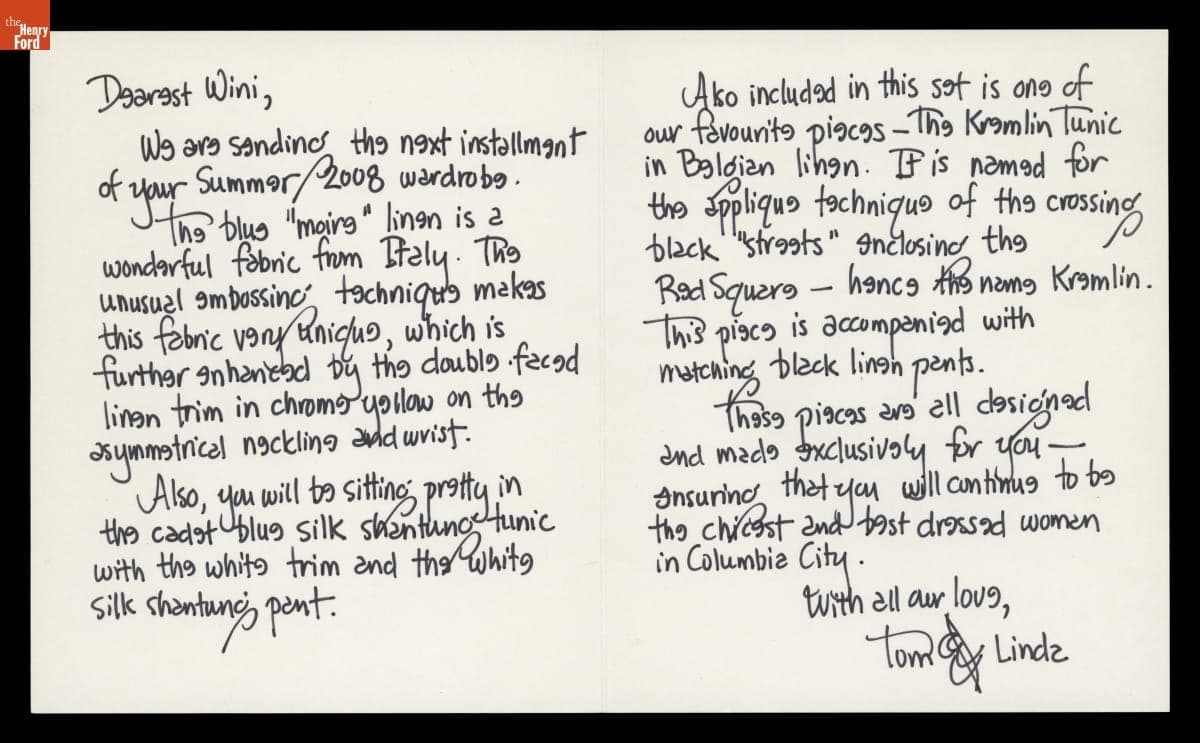 the
Henry
Ford
Dearest Wini,
We are sending the next installment
of your Summer/2008 wardrobe.
The blue "moire" linen is a
wonderful fabric from Italy. The
unusual embossing technique makes
this fabric very unique, which is
further enhanced by the double-faced
linen trim in chrome yellow on the
asymmetrical neckline and wrist.
Also, you will be sitting pretty in
the cadet blue silk shantung tunic
with the white trim and the white
silk shantung pant.
Also included in this set is one of
our favourite pieces – The Kremlin Tunic
in Belgian linen. It is named for
the applique technique of the crossing
black "streets" enclosing the
Red Square – hence the name Kremlin.
This piece is accompanied with
matching black linen pants.
These pieces are all designed
and made exclusively for you –
ensuring that you will continue to be
the chicest and best dressed women
in Columbia City.
With all our love,
Tom & Linda